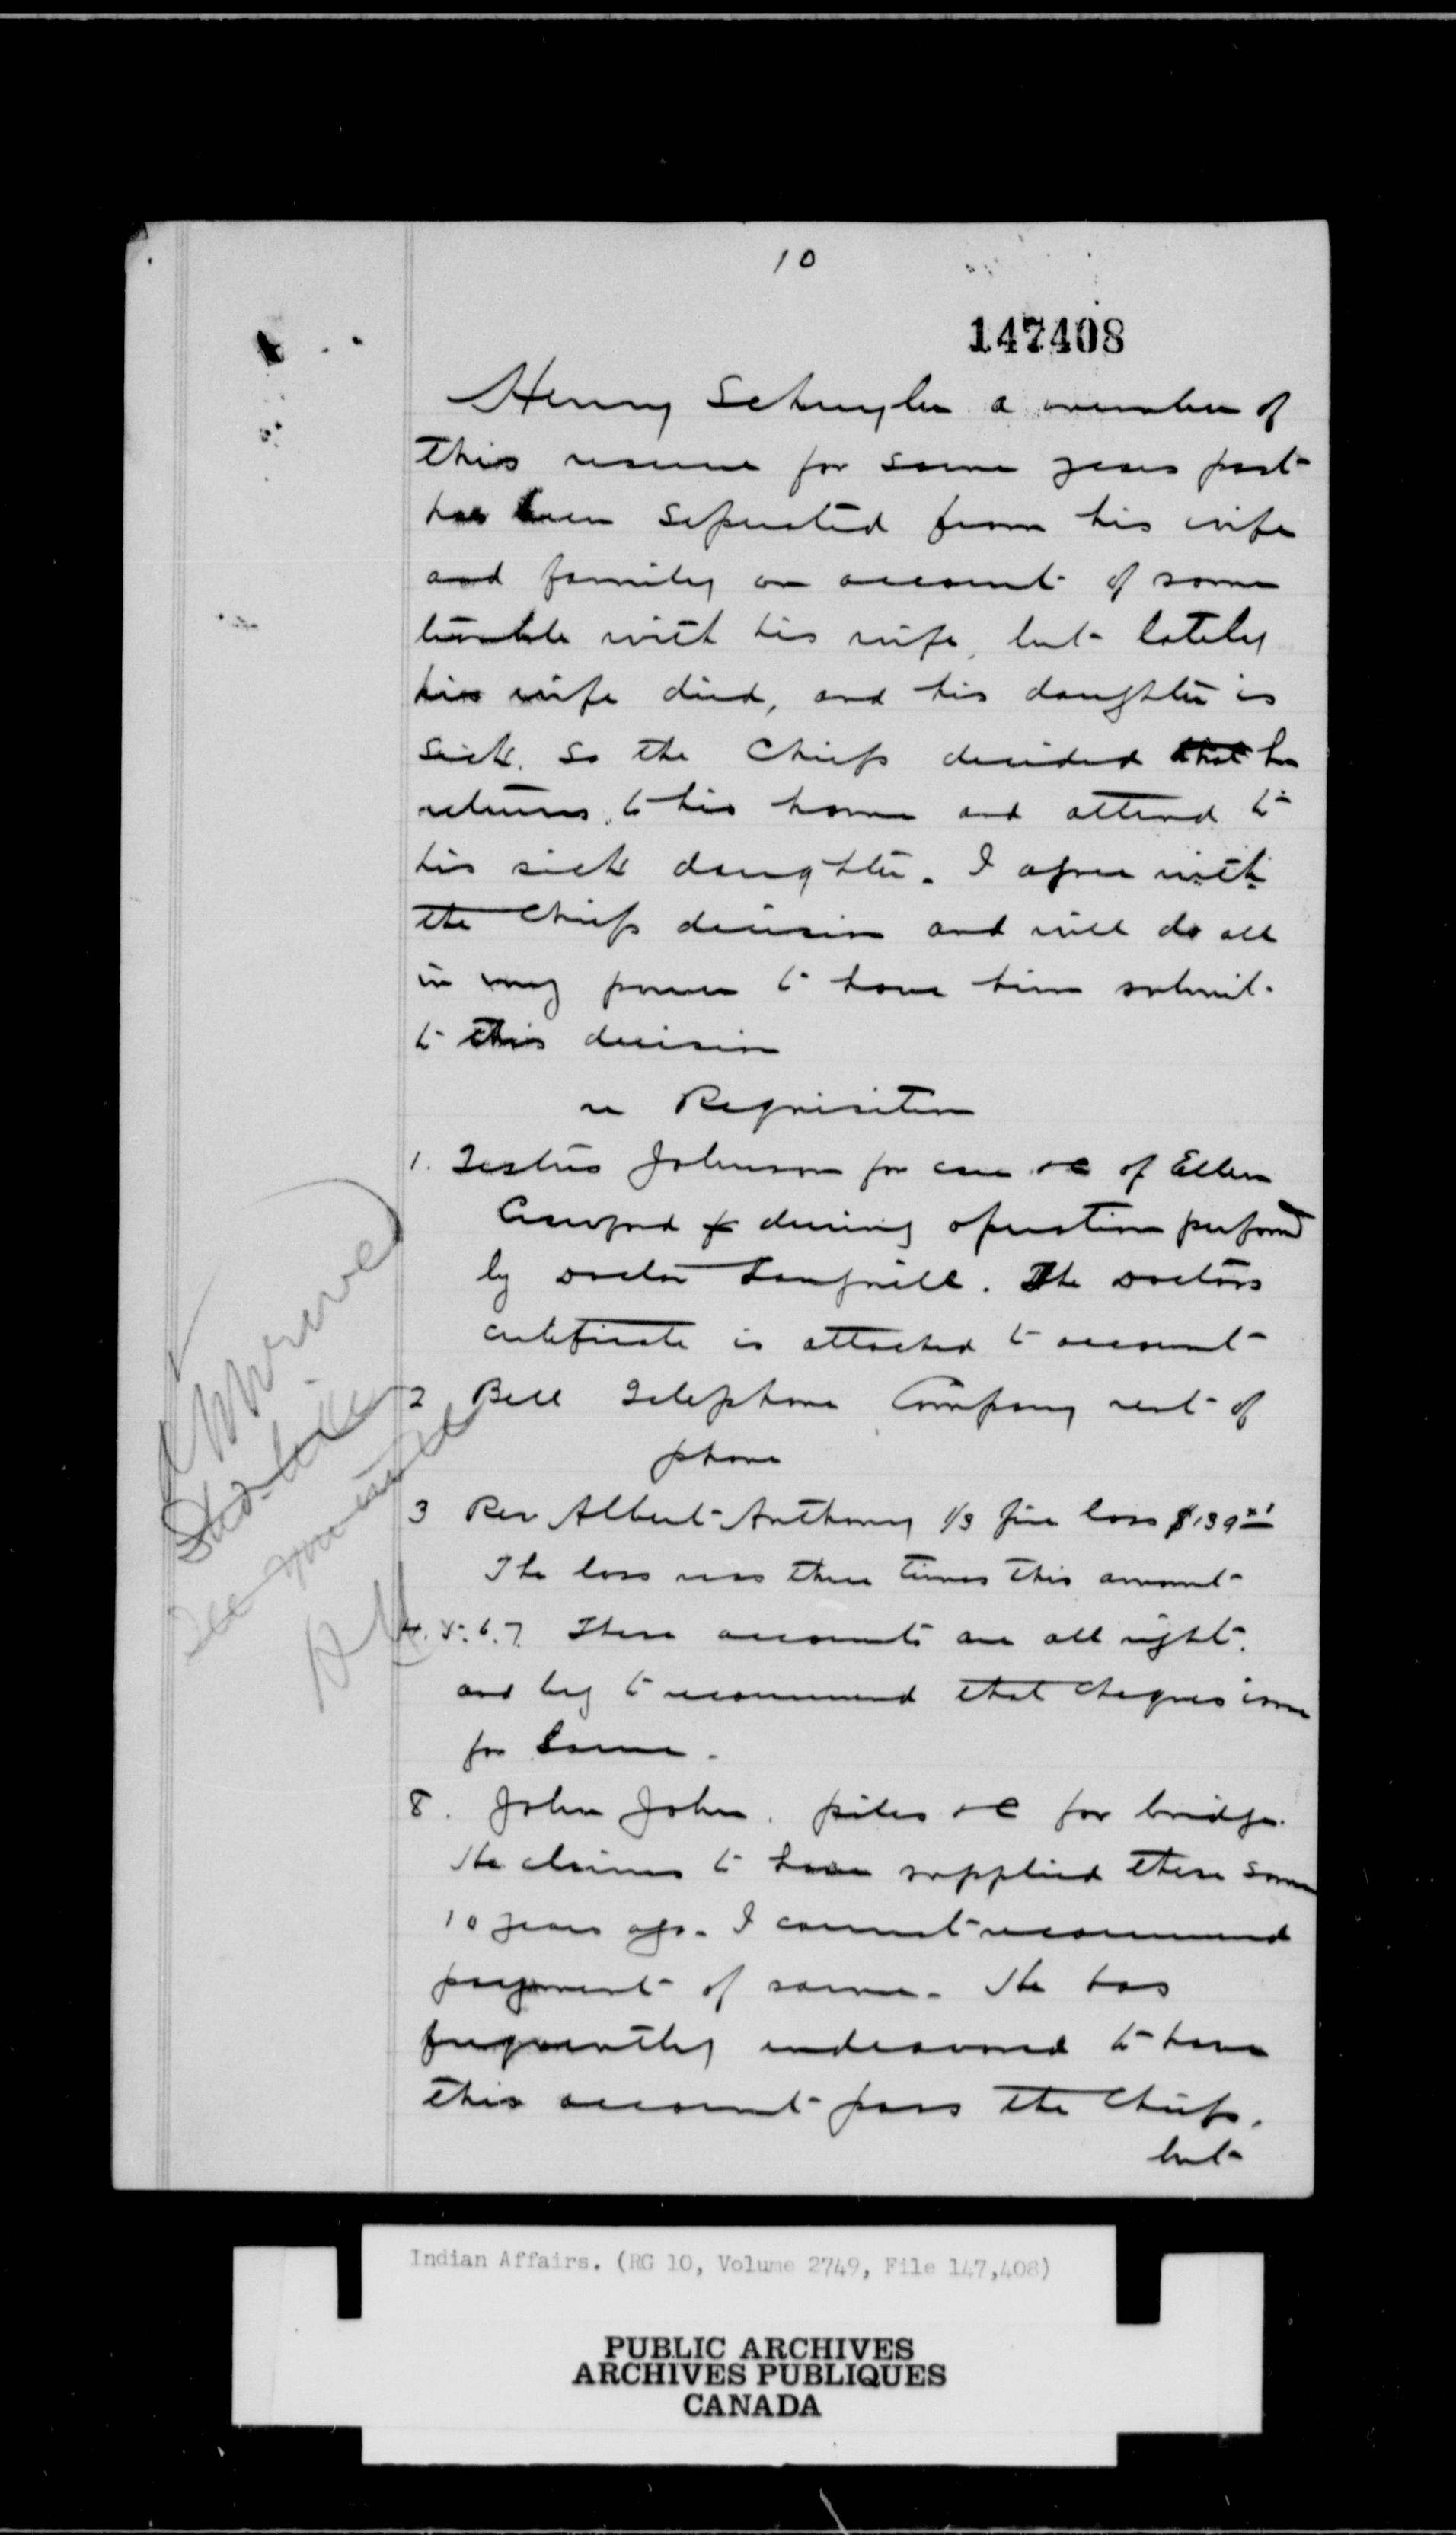 10
147408
Henry Schuyler a member of
this reserve for some years past
has been seperated from his wife
and family on account of some
trouble with his wife, but lately
his wife died, and his daughter is
sick. So the Chiefs decided that he
returns to his home and attend to
his sick daughter. I agree with
the Chiefs decision and will do all
in my power to have him submit
to this decision
re Requisition
1. Festus Johnson for care &c of Ellen
Crawford during operation performed
by Doctor Langrill. The Doctors
certificate is attached to account
2 Bell Telephone Company rent of
phone
3 Rev Albert Anthony 1/3 fire loss $139
The loss was three times this amount
4. 5. 6. 7. These accounts are all right.
and beg to recommend that cheques issue
for same.
8. John John. piles &c for bridge.
He claims to have supplied these some
10 years ago. I cannot recommend
payment of same. He has
frequently endeavored to have
this account pass the Chiefs.
but
Approved
Indian Affairs. (RG 10, Volume 2749, File 147,408)
PUBLIC ARCHIVES
ARCHIVES PUBLIQUES
CANADA